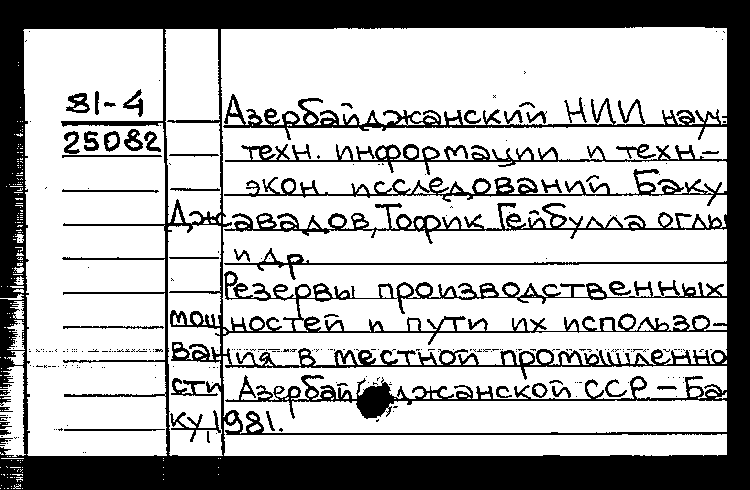 81-4
25082
Азербайджанский НИИ науч-
техн. информации и техн.-
экон. исследований Баку
Джавадов, Тофик Гейбулла оглы
и др.
Резервы производственных
мощностей и пути их использо-
вания в местной промышленно
сти Азербайджанской ССР – Ба-
ку, 1981.